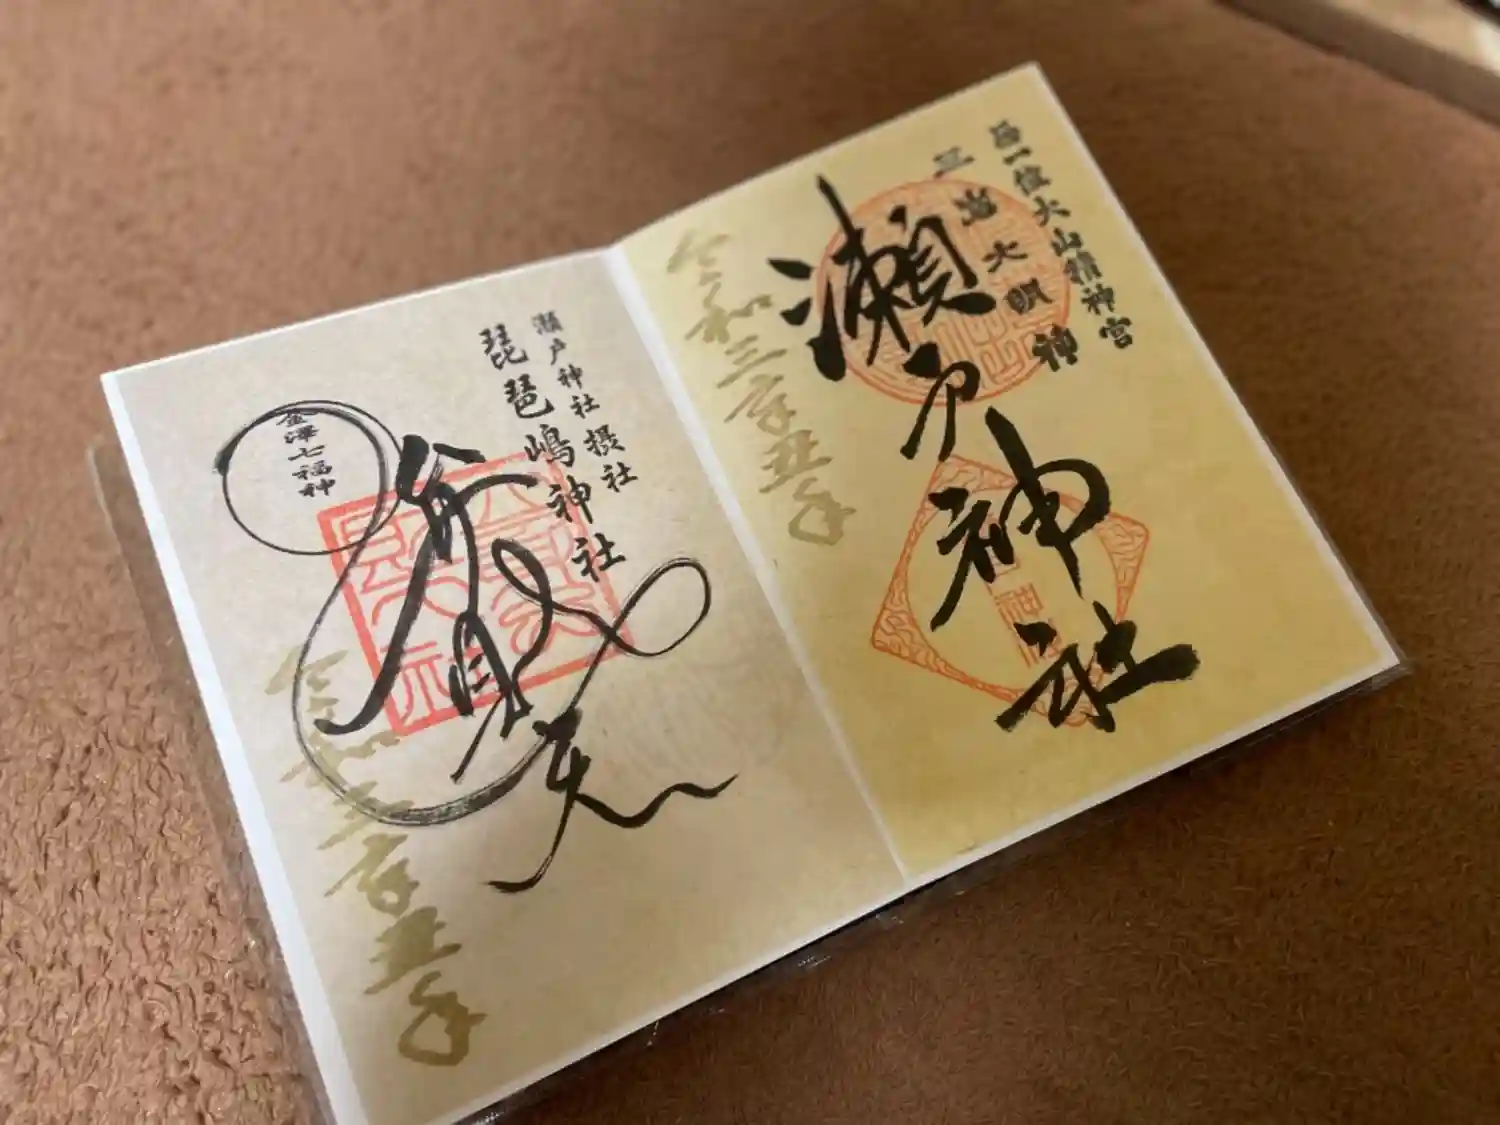 正一位大山積神宮
三島大明神
瀬戸神社
令和三辛丑年
瀬戸神社摂社
琵琶嶋神社
金澤七福神
令和三辛丑年